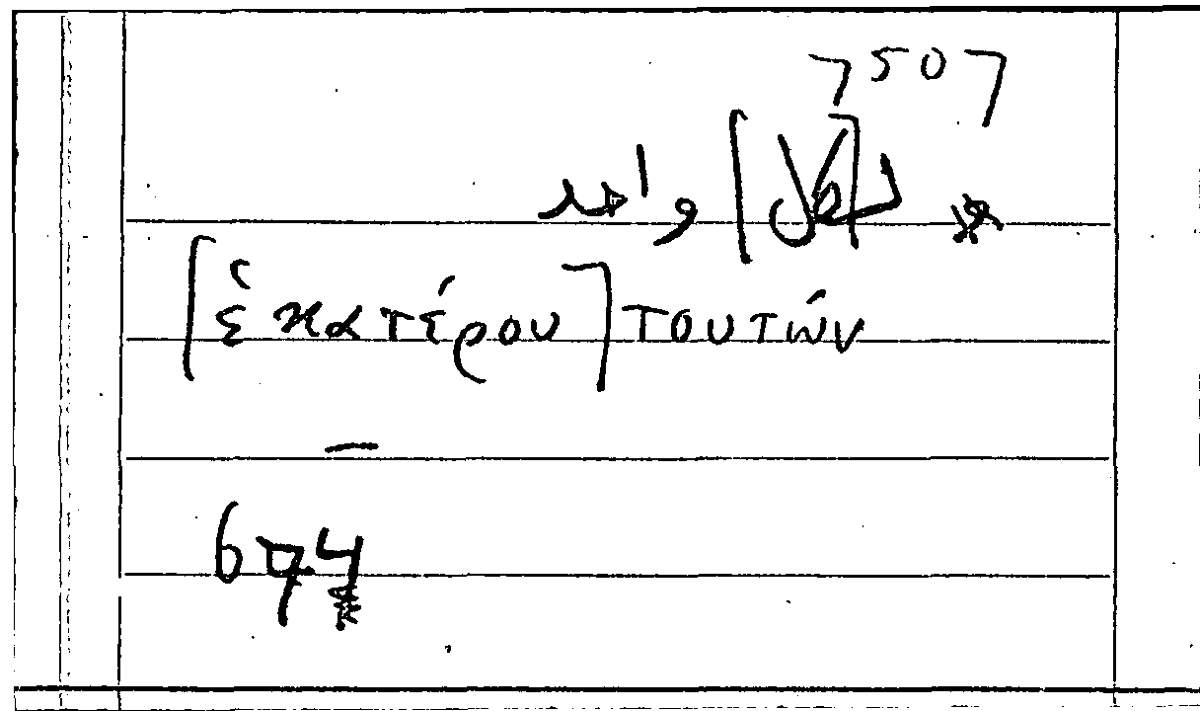 7507
ل[كل] واحد
[ἑκατέρου] τουτών